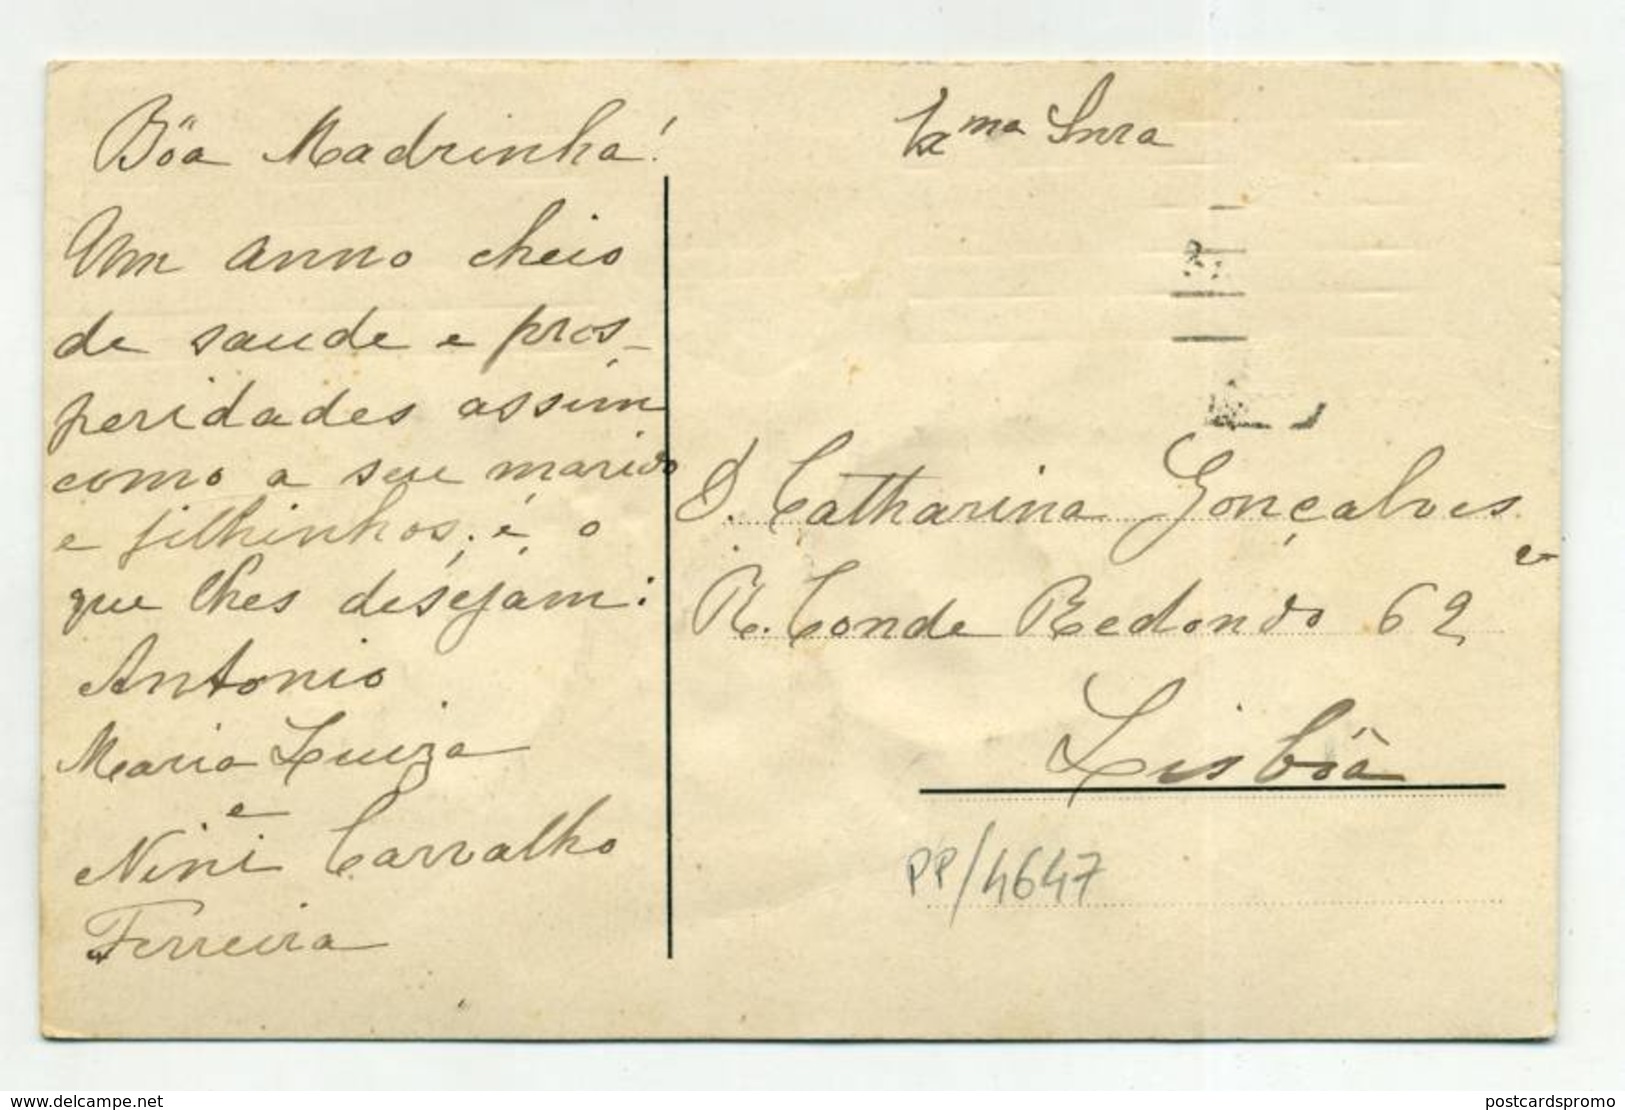 Bôa Madrinha!
Um anno cheio
de saude e pros-
peridades assim
como a seu marido
e filhinhos, é o
que lhes desejam:
Antonio
Maria Luiza
e
Nini Carvalho
Ferreira
Exma Snra
D. Catharina Gonçalves
R. Conde Redondo 62
Lisbôa
PP/4647
www.delcampe.net
postcardspromo